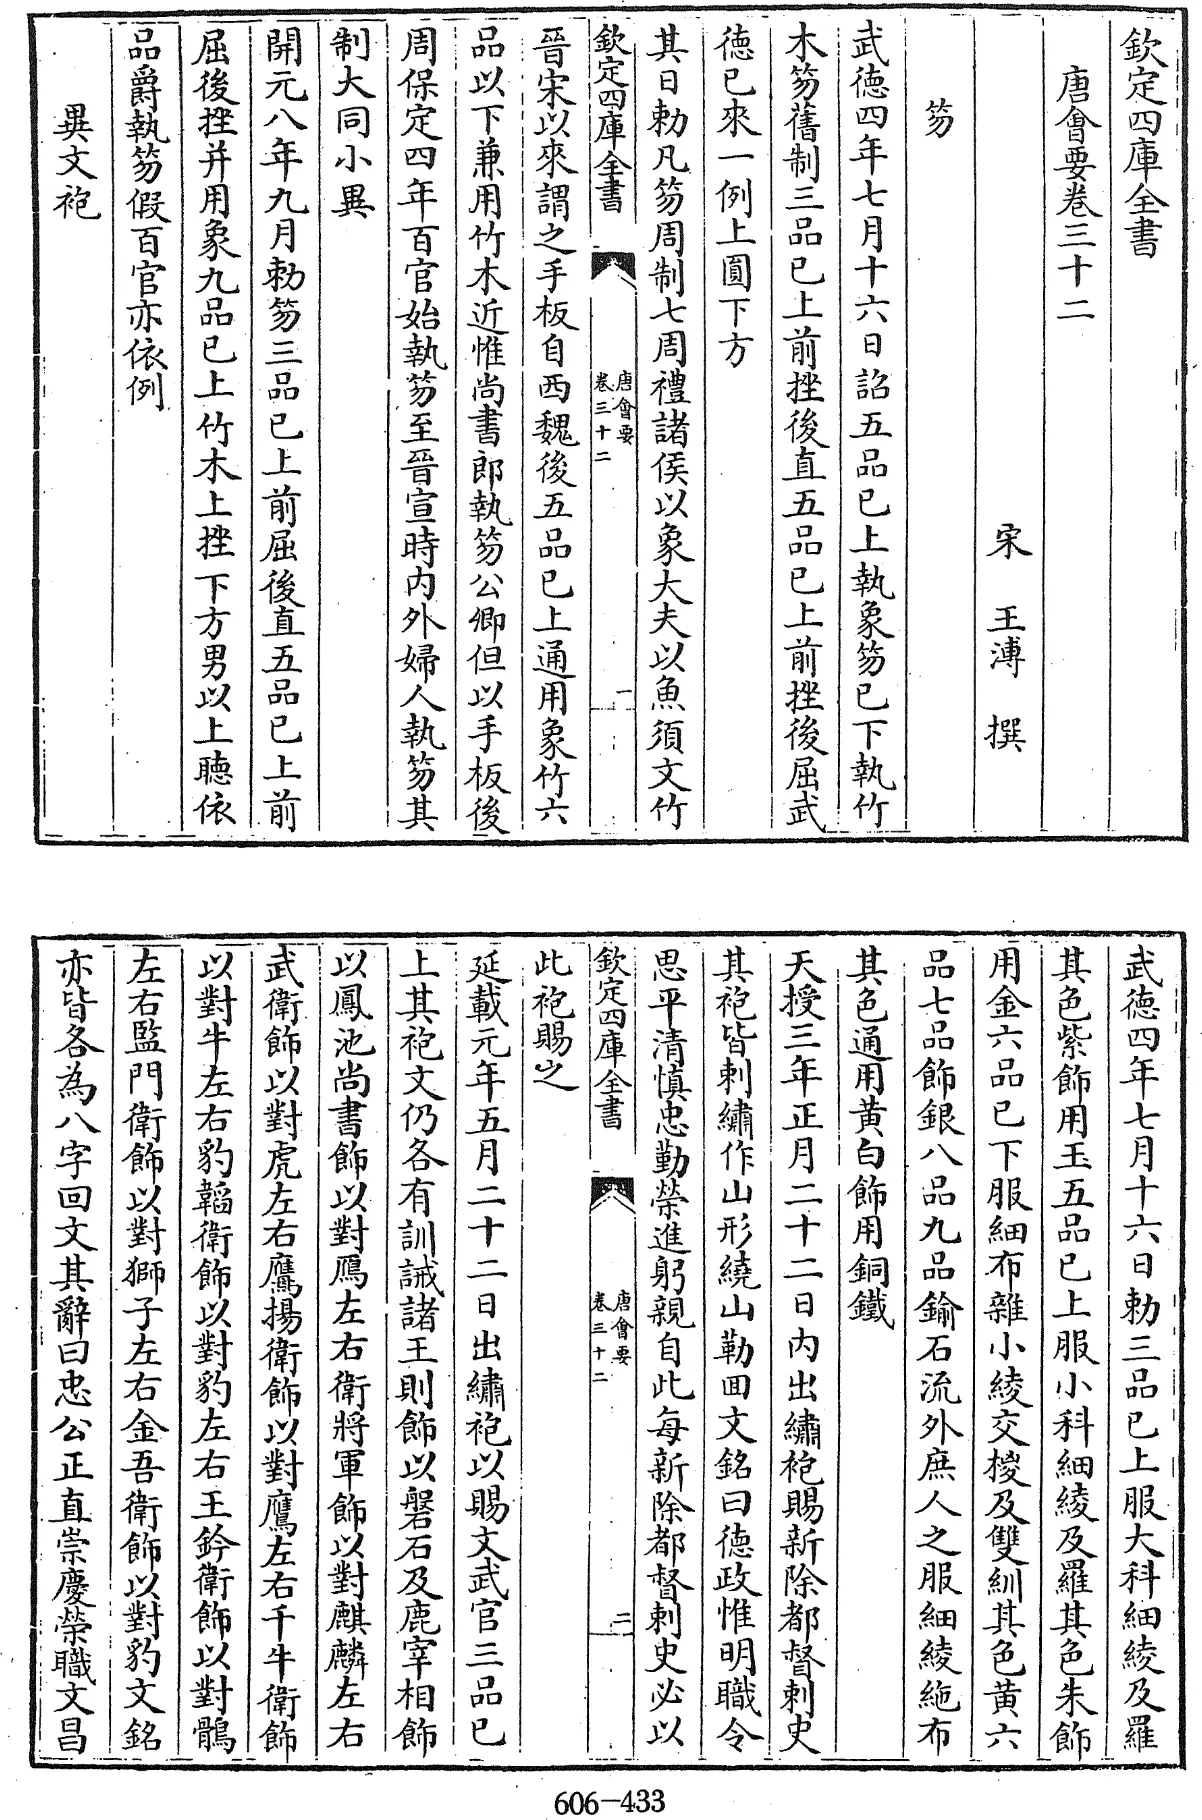 欽定四庫全書
唐會要卷三十二
宋 王溥 撰
笏
武德四年七月十六日詔五品已上執象笏已下執竹
木笏舊制三品已上前挫後直五品已上前挫後屈武
德已來一例上圓下方
其日勅凡笏周制七周禮諸侯以象大夫以魚須文竹
欽定四庫全書
唐會要
卷三十二
一
晉宋以來謂之手板自西魏後五品已上通用象竹六
品以下兼用竹木近惟尚書郎執笏公卿但以手板後
周保定四年百官始執笏至晉宣時內外婦人執笏其
制大同小異
開元八年九月勅笏三品已上前屈後直五品已上前
屈後挫并用象九品已上竹木上挫下方男以上聽依
品爵執笏假百官亦依例
異文袍
武德四年七月十六日勅三品已上服大科細綾及羅
其色紫飾用玉五品已上服小科細綾及羅其色朱飾
用金六品已下服細布雜小綾交梭及雙紃其色黃六
品七品飾銀八品九品鍮石流外庶人之服細綾絁布
其色通用黃白飾用銅鐵
天授三年正月二十二日內出繡袍賜新除都督刺史
其袍皆刺繡作山形繞山勒回文銘曰德政惟明職令
思平清慎忠勤榮進躬親自此每新除都督刺史必以
欽定四庫全書
唐會要
卷三十二
二
此袍賜之
延載元年五月二十二日出繡袍以賜文武官三品已
上其袍文仍各有訓誡諸王則飾以磐石及鹿宰相飾
以鳳池尚書飾以對鴈左右衛將軍飾以對麒麟左右
武衛飾以對虎左右鷹揚衛飾以對鷹左右千牛衛飾
以對牛左右豹韜衛飾以對豹左右玉鈐衛飾以對鶻
左右監門衛飾以對獅子左右金吾衛飾以對豹文銘
亦皆各為八字回文其辭曰忠公正直崇慶榮職文昌
606-433